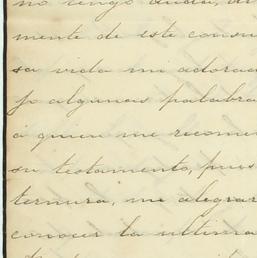 no tengo duda, de
mente de este consu
sa vida mi adorad
jo algunas palabra
á quien me recomi
su testamento, pues
ternura, me alegrar
conocer la ultima